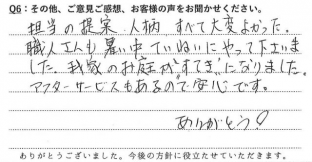 Q6：その他、ご意見ご感想、お客様の声をお聞かせください。
担当の提案、人柄 すべて大変よかった。
職人さんも暑い中ていねいにやって下さいま
した。我家のお庭が"すてき"になりました。
アフターサービスもあるので安心です。
ありがとう!
ありがとうございました。今後の方針に役立たせていただきます。